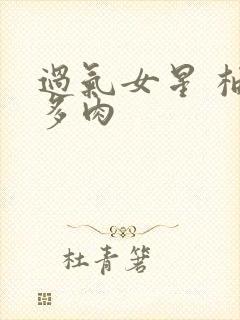 過氣女星 柚
多肉
杜青箬